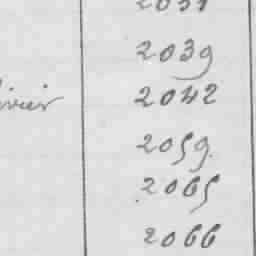 2039
2042
2059
2065
2066